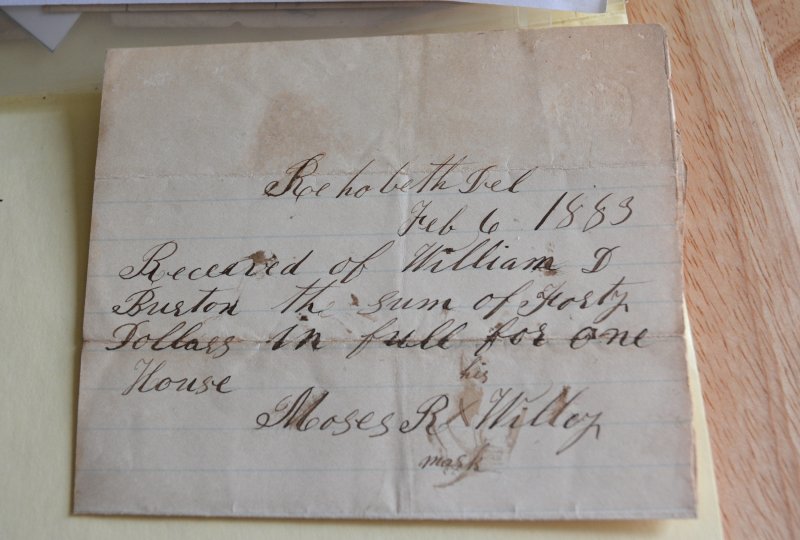 Rehobeth Del
Feb 6 1883
Received of William D
Burton the sum of Forty
Dollars in full for one
House
his
Moses R X Willey
mark